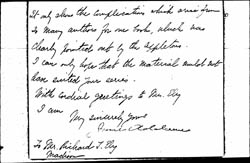 It only shows the complications which arise from
so many authors for one book, which was
clearly pointed out by the
I can only hope that the material must not
have suited your series.
With cordial greetings to Mrs. Ely
I am
Very sincerely yours
To Mr. Richard T. Ely
Madison